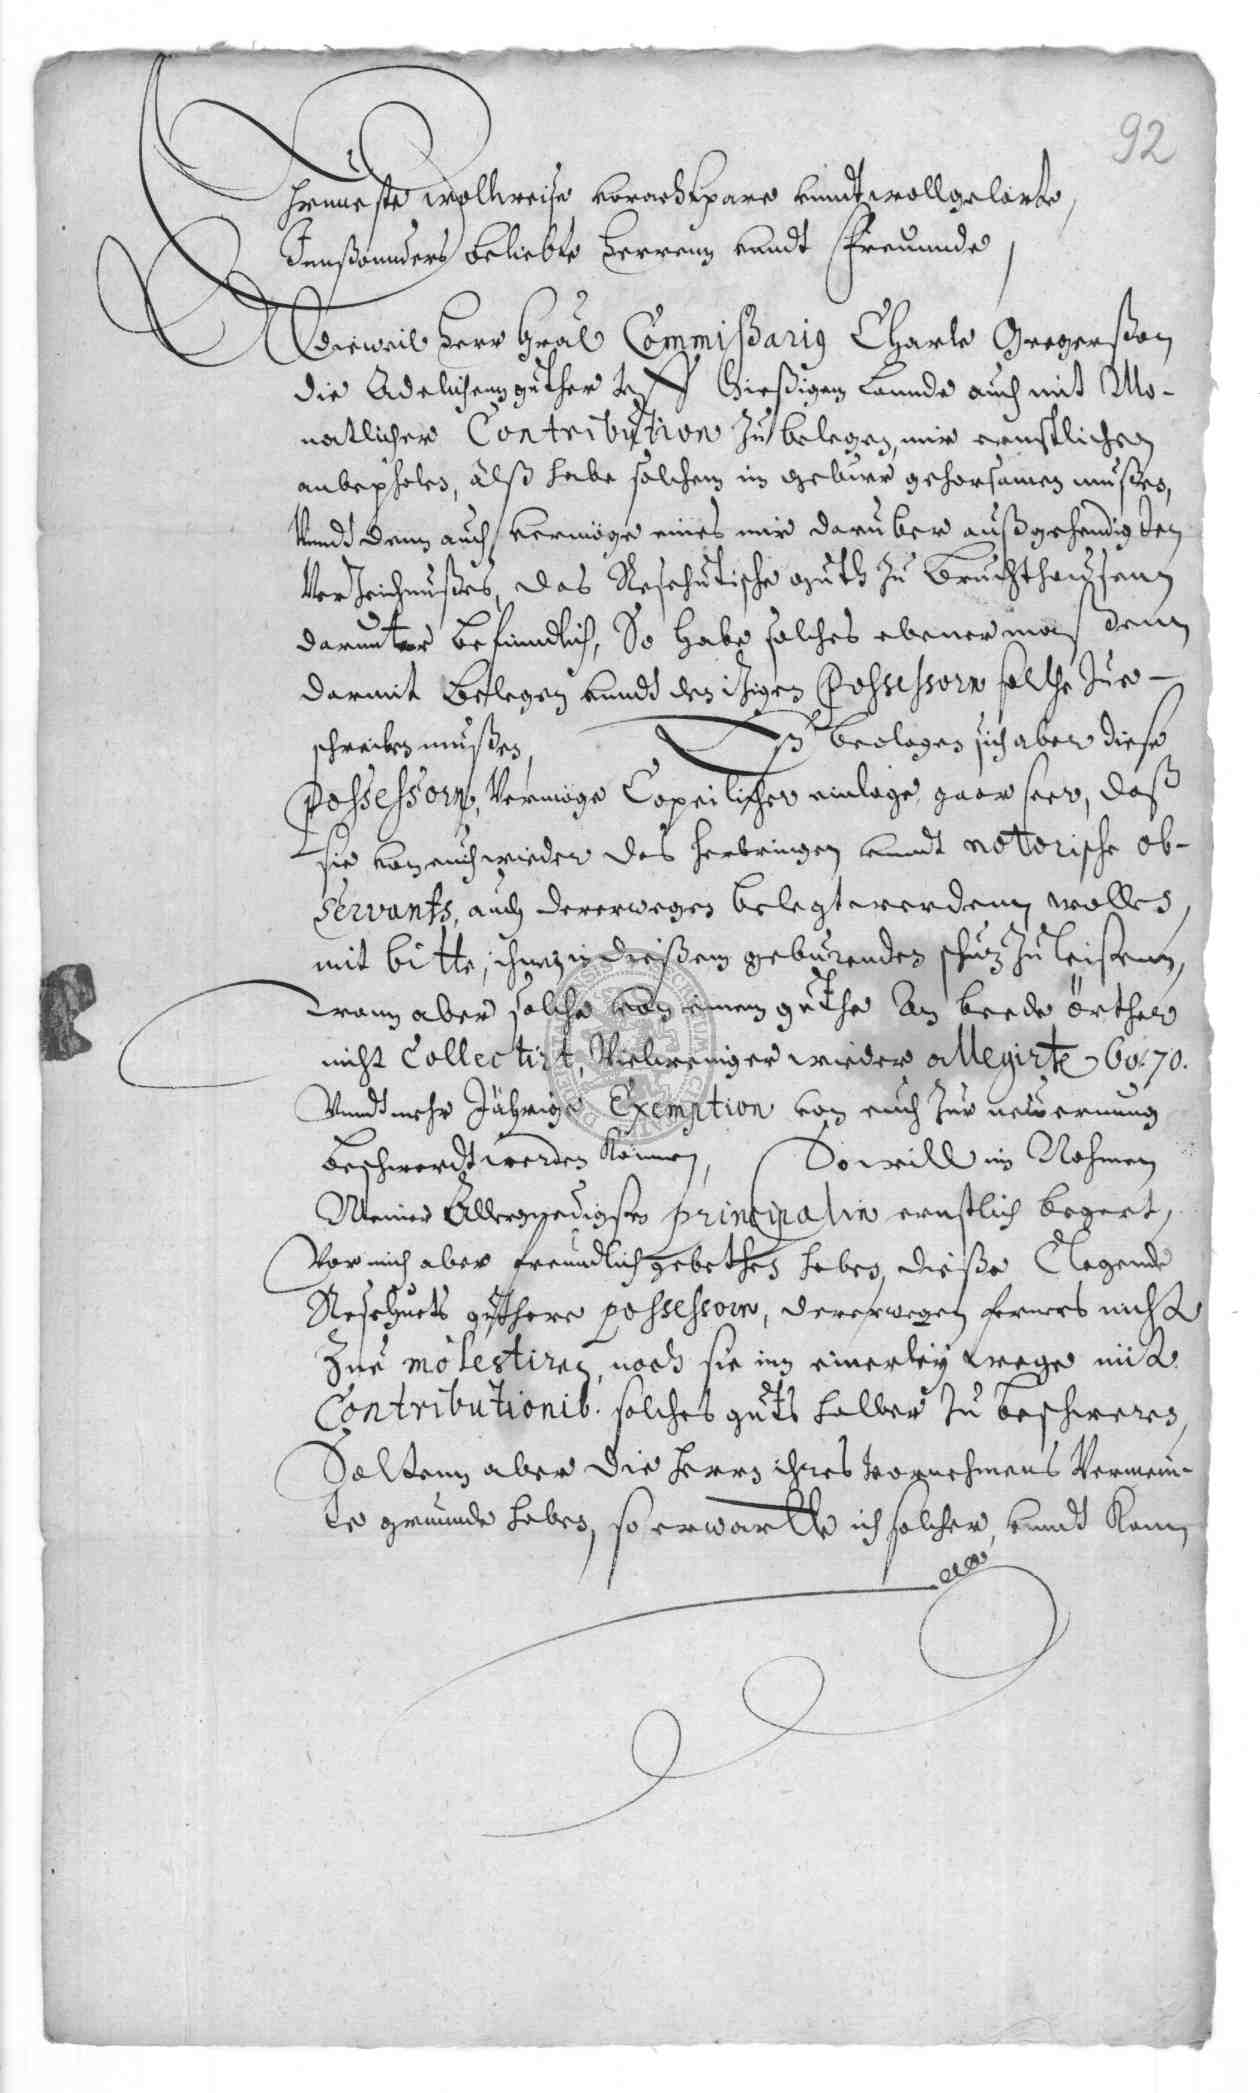 92
Ehrnueste wollweise vorachtpare unndt wollgelarte,
Innßonnders beliebte Herrenn unndt Freuunde,
Dieweil Herr General Commißarius Charle Gregerßon
die Adelichenn guther uff hießigem Lannde auch mit Mo-
natlicher Contribution zu belegen, mir ernstlichen
anbepholen, alß habe solchem in gebuer gehorsamen mußen,
Unndt denn auch vermöge eines mir daruber außgehendigten
Verzeichnußes, das guth zu Bruchthausenn
darunter befinndlich, So habe solches ebener maßenn
darmit belegen unndt den itzigen Possessorn solche zue-
schreiben mußen, Eß beclagen sich aber diese
Possessorn, Vermöge Copeilicher einlage gaar seer, daß
sie von euch wieder das herbringen unndt notorische ob-
servants, auch dererwegen belegt werdenn wollen,
mit bitte, ihnen in dießem geburenden schutz zu leistenn,
Wann aber solche von einem guthe an beede örther
nicht Collectirt, Vielweniger wieder allegirte 60. 70.
Unndt mehr Jährige Exemption von euch zur newerung
beschwerdt werden können, So will im Nahmen
Meiner Allergnedigsten principalin ernstlich begert,
Vor mich aber freundlich gebethen haben, dieße Clagende
guthere possessorn, dererwegen ferners nicht
Zue molestiren, noch sie inn einerley wege mit
Contributionib. solches guts halber zu beschweren,
Soltenn aber die Herrn ihres vornehmens Vermein-
te gruunde haben, so erwartte ich solcher, unndt kann